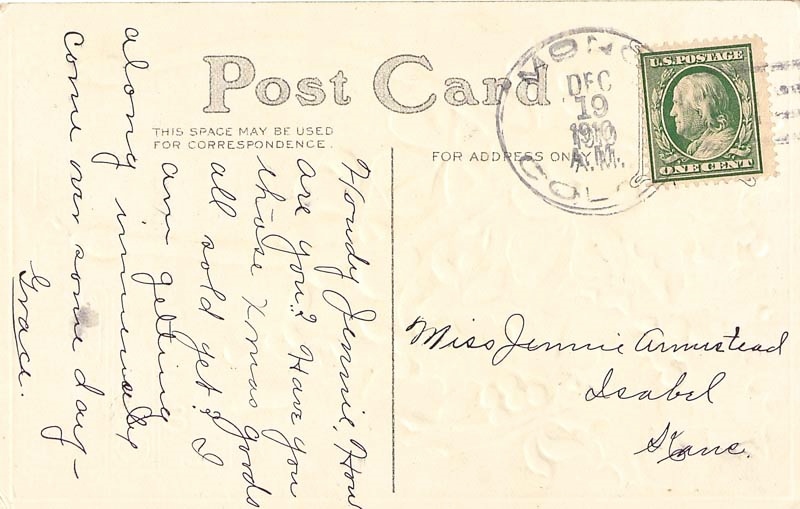 Post Card
THIS SPACE MAY BE USED
FOR CORRESPONDENCE.
FOR ADDRESS ONLY.
MON
DEC
19
1910
A.M.
COLO
U.S. POSTAGE
ONE CENT
Howdy Jennie, How
are you? Have you
those Xmas goods
all sold yet? I
am getting
along
come over some day—
Grace.
Miss Jennie Armstead
Isabel
Kans.